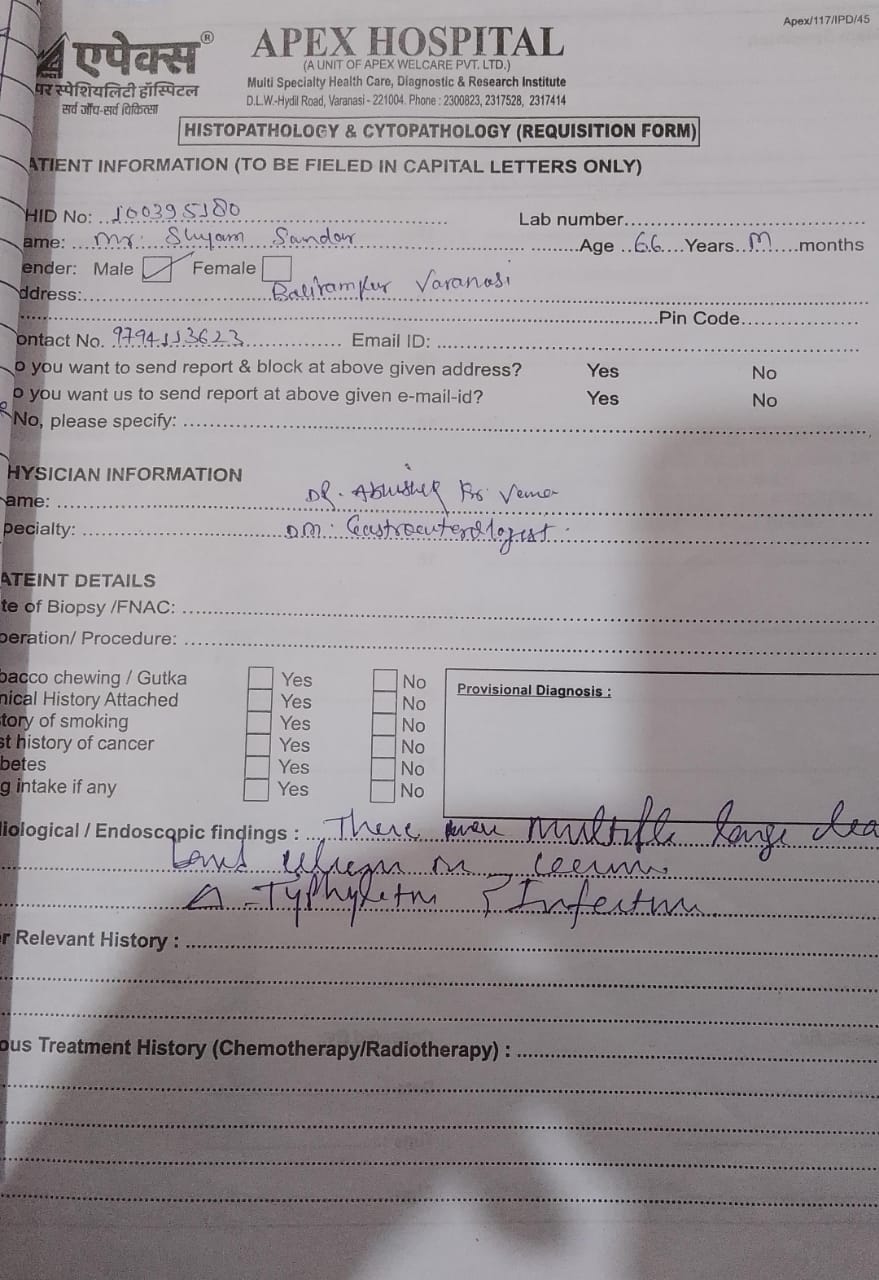 Apex/117/IPD/45
एपेक्स®
पर स्पेशियलिटी हॉस्पिटल
सर्व जाँच-सर्व चिकित्सा
APEX HOSPITAL
(A UNIT OF APEX WELCARE PVT. LTD.)
Multi Specialty Health Care, Diagnostic & Research Institute
D.L.W.-Hydil Road, Varanasi - 221004. Phone : 2300823, 2317528, 2317414
HISTOPATHOLOGY & CYTOPATHOLOGY (REQUISITION FORM)
ATIENT INFORMATION (TO BE FIELED IN CAPITAL LETTERS ONLY)
HID No: 100395180 Lab number
ame: Mr. Shyam Sandar Age 66 Years M months
ender: Male Female
ddress: Varanasi
Pin Code
ontact No. 9794113623 Email ID:
o you want to send report & block at above given address? Yes No
o you want us to send report at above given e-mail-id? Yes No
No, please specify:
HYSICIAN INFORMATION
ame: DR. Abhishek Kr. Verma
pecialty: DM. Gastroenterologist.
ATEINT DETAILS
te of Biopsy /FNAC:
peration/ Procedure:
bacco chewing / Gutka Yes No
nical History Attached Yes No
tory of smoking Yes No
st history of cancer Yes No
betes Yes No
g intake if any Yes No
Provisional Diagnosis :
iological / Endoscopic findings : There were multiple large clea
in cecum.
Infection
r Relevant History :
ous Treatment History (Chemotherapy/Radiotherapy) :